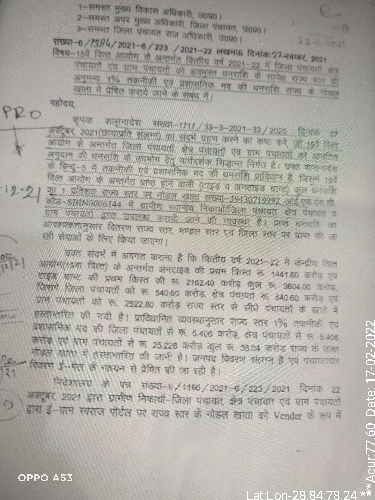 1-समस्त मुख्य विकास अधिकारी, उ0प्र0।
2-समस्त अपर मुख्य अधिकारी, जिला पंचायत, उ0प्र0।
3-समस्त जिला पंचायत राज अधिकारी, उ0प्र0।
संख्या-6/1584/2021-6/223 /2021-22 लखनऊ दिनांक: 22-नवम्बर, 2021
विषय-15वें वित्त आयोग के अन्तर्गत वित्तीय वर्ष 2021-22 में जिला पंचायतों क्षेत्र
पंचायतों एवं ग्राम पंचायतों को अवमुक्त धनराशि के सापेक्ष राज्य स्तर की
अनुमन्य 1% तकनीकी एवं प्रशासनिक मद की धनराशि राज्य के नोडल
खाता में प्रेषित कराये जाने के सम्बंध में।
महोदय,
PRO
कृपया शासनादेश संख्या-1717/33-3-2021-33/2020 दिनांक
अक्टूबर 2021(छायाप्रति संलग्न) का संदर्भ ग्रहण करने का कष्ट करें, जो 15वें वित्त
आयोग के अन्तर्गत जिला पंचायतों, क्षेत्र पंचायतों एवं ग्राम पंचायतों को आवंटित
अनुदान की धनराशि के उपभोग हेतु मार्गदर्शक सिद्धान्त निर्गत है। उक्त शासनादेश
के बिन्दु-5 में तकनीकी एवं प्रशासनिक मद की धनराशि का प्राविधान है, जिसमें 15वें
वित्त आयोग के अन्तर्गत प्राप्त होने वाली (टाइड व अनटाइड ग्रान्ट) कुल धनराशि
12-21
का 1 प्रतिशत राज्य स्तर पर नोडल खाता संख्या-39130719992 आई.एफ.एस.सी.
कोड-SBIN0006144 में ग्रामीण स्थानीय निकायों(जिला पंचायत क्षेत्र पंचायत व
ग्राम पंचायत) द्वारा उपलब्ध करायी जाने की व्यवस्था है। प्राप्त धनराशि का
आवश्यकतानुसार वितरण राज्य स्तर मण्डल स्तर एवं जिला स्तर पर प्राप्त की जा
रही सेवाओं के लिए किया जाएगा।
उक्त संदर्भ में अवगत कराना है कि वित्तीय वर्ष 2021-22 में केन्द्रीय वित्त
आयोग(15वां वित्त) के अन्तर्गत अनटाइड की प्रथम किश्त रू 1441.60 करोड़ एवं
टाइड ग्रान्ट की प्रथम किश्त की रू 2162.40 करोड़ कुल रू 3604.00 करोड़,
जिसमें जिला पंचायतों को रू 540.60 करोड़, क्षेत्र पंचायतों रू 540.60 करोड़ एवं
ग्राम पंचायतों को रू 2522.80 करोड़ राज्य स्तर से सीधे पंचायतों के खातों में
हस्तान्तरित की गयी है। प्राविधानित व्यवस्थानुसार राज्य स्तर 1% तकनीकी एवं
प्रशासनिक मद की जिला पंचायतों से रू 5.406 करोड़, क्षेत्र पंचायतों से रू 5.406
करोड़ एवं ग्राम पंचायतों से रू 25.228 करोड़ कुल रू 36.04 करोड़ राज्य के उक्त
नोडल खाता में हस्तान्तरित की जानी है। जनपद विवरण संलग्न है एवं पंचायतवार
विवरण ई-मेल के माध्यम से प्रेषित की जा रही है।
निदेशालय के पत्र संख्या-6/1166/2021-6/223/2021 दिनांक 22
अक्टूबर 2021 द्वारा ग्रामीण निकायों-जिला पंचायत, क्षेत्र पंचायत एवं ग्राम पंचायतों
द्वारा ई-ग्राम स्वराज पोर्टल पर राज्य स्तर के नोडल खाता को Vender के रूप में
OPPO A53
Lat Lon-28.84:78.24 **Acur:77.60 Date:17-02-2022